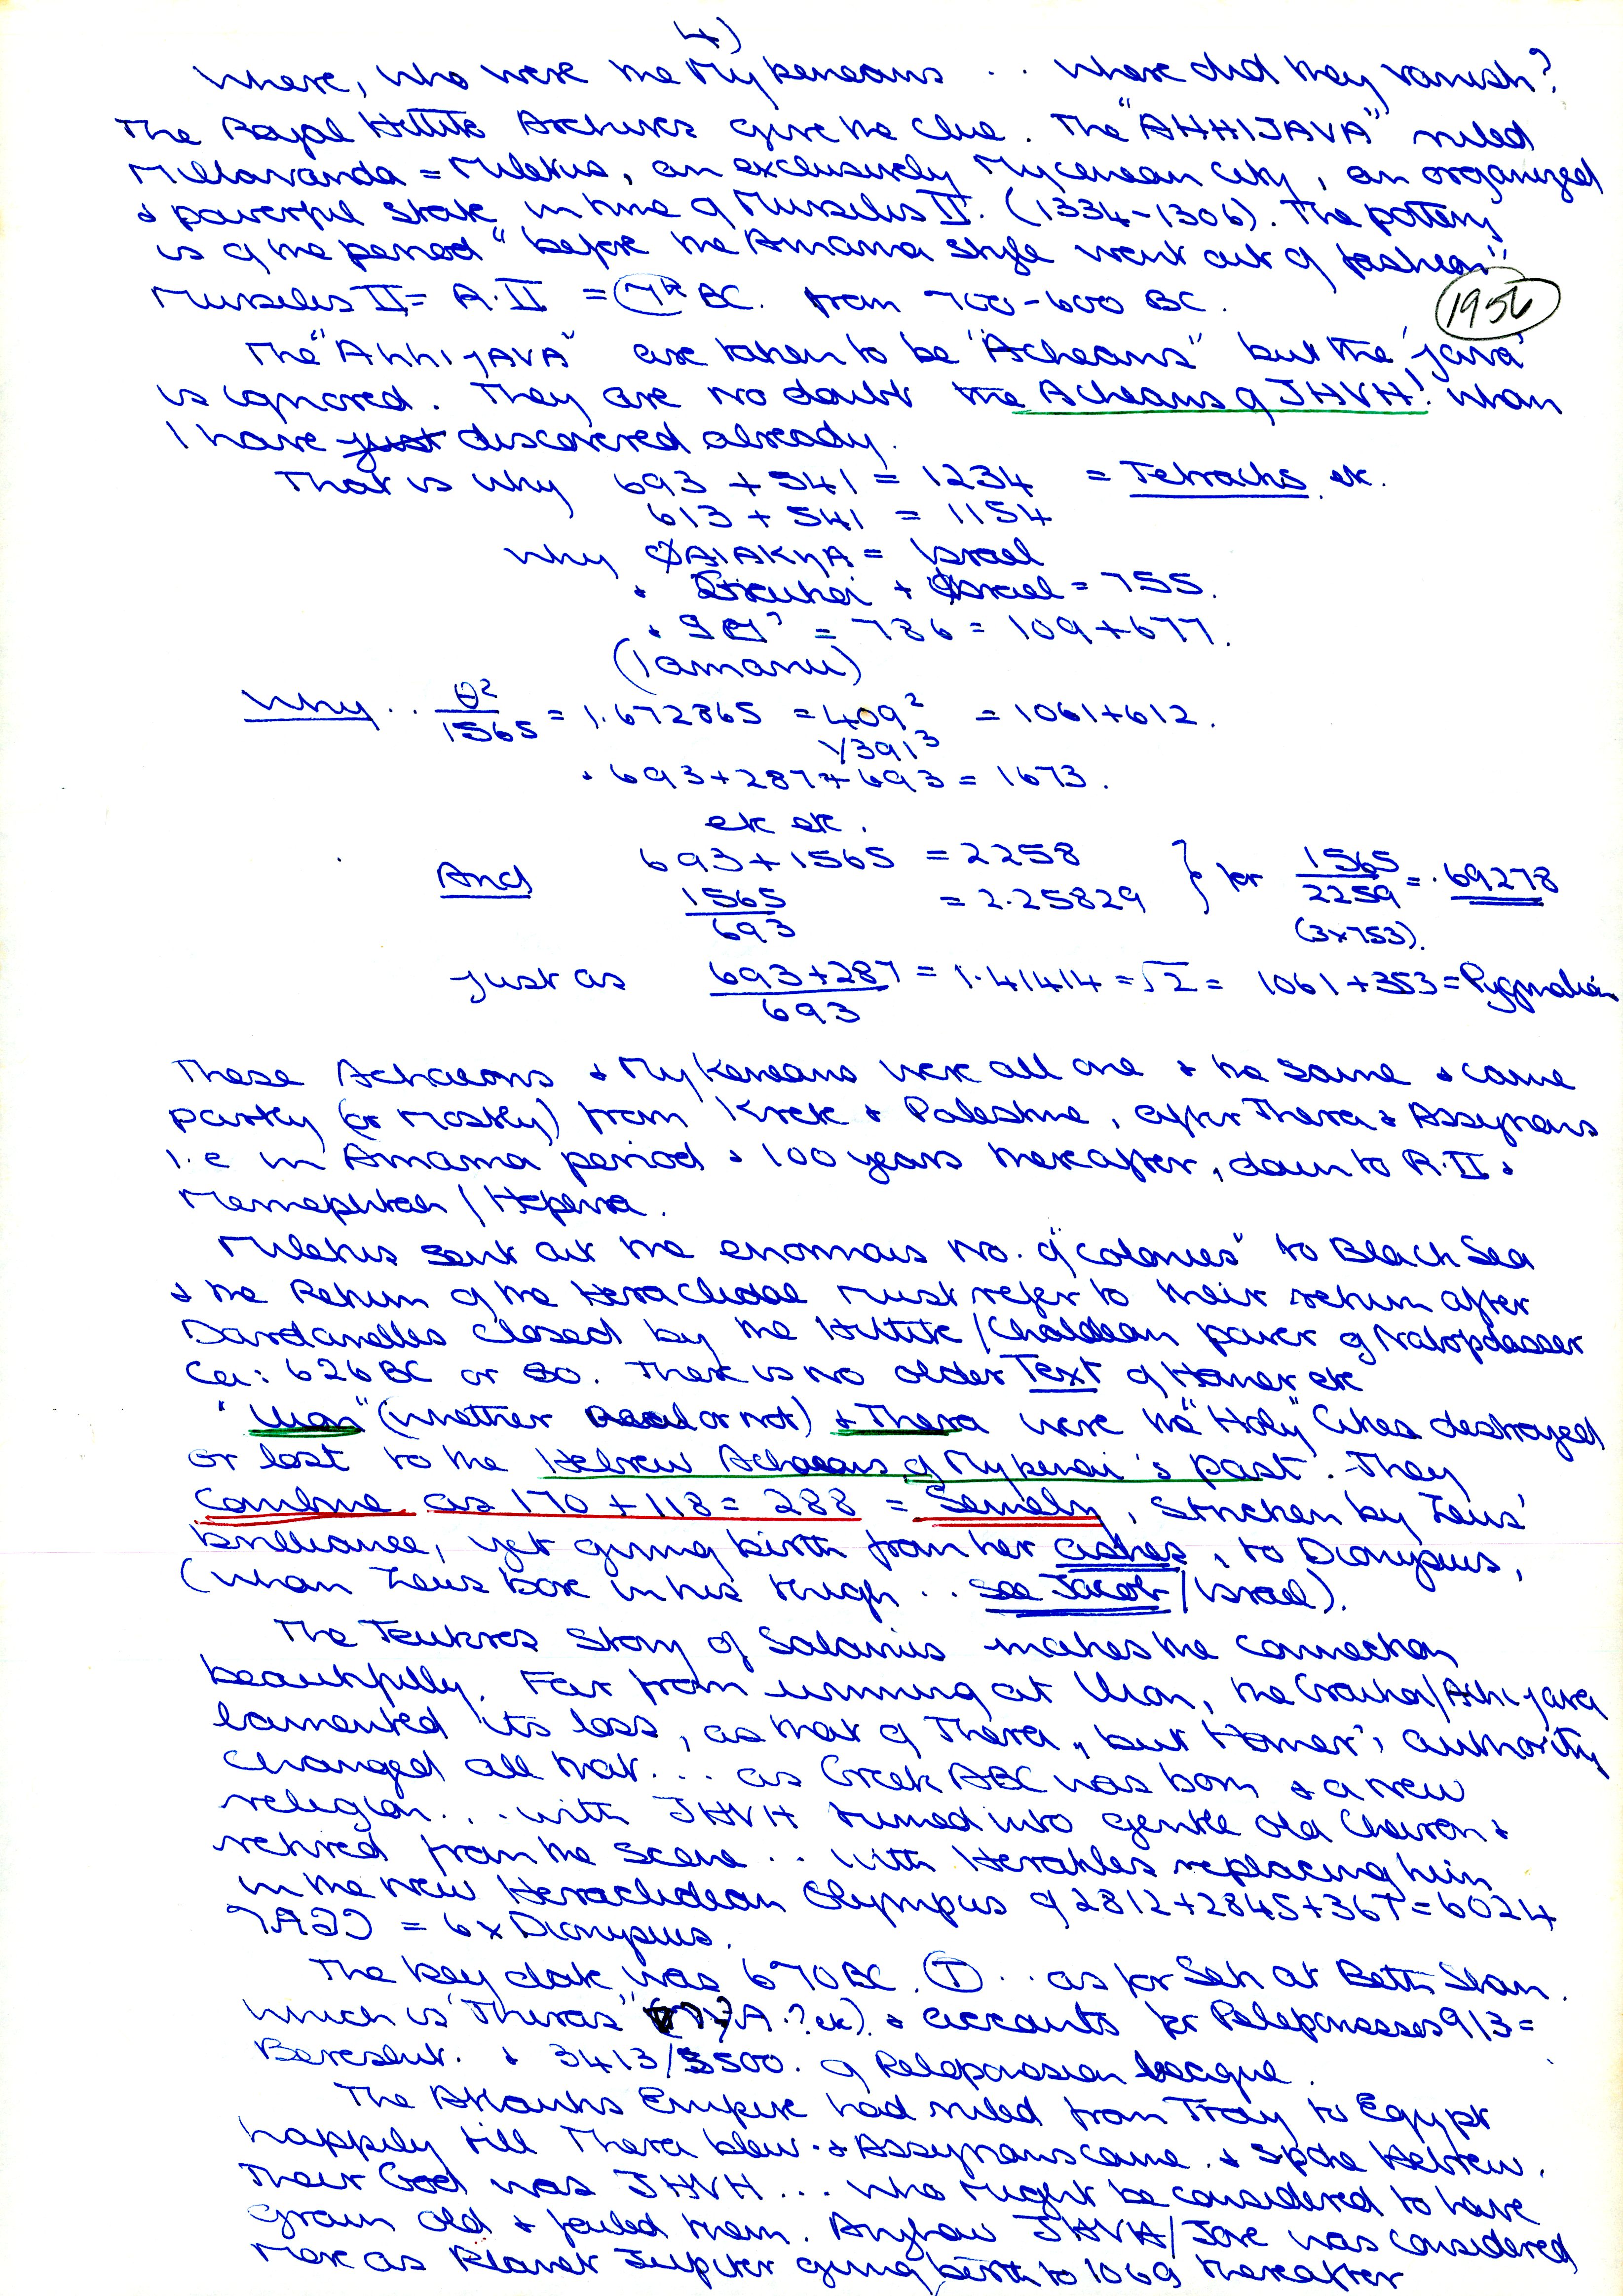 4)
Where, who were the Mykeneans .. where did they vanish?
The Royal Hittite Archives give the clue. The "AHHIJAVA" ruled
Millavanda = Miletus, an exclusively Mycenean city, an organized
& powerful state in time of Mursilis II. (1334-1306). The pottery
is of the period "before the Amarna style went out of fashion".
Mursiles II = R.II = 7th BC. from 700-600 BC.
1956
The "AhhijAVA" are taken to be "Acheans" but the 'java'
is ignored. They are no doubt the Acheans of JHVH! whom
I have just discovered already.
That is why 693 + 541 = 1234 = Tetractis etc.
613 + 541 = 1154
Why ΦAIAKHA = Israel
& + Israel = 755.
& = 786 = 109+677.
(Iamanu)
Why .. θ²/1565 = 1.672865 = 409²/√391³ = 1061+612.
& 693+287+693 = 1673.
etc etc.
And 693+1565 = 2258
1565/693 = 2.25829 } for 1565/2259 = .69278
(3x753).
just as 693+287/693 = 1.41414 = √2 = 1061+353 = Pygmalion
These Achaeans & Mykeneans were all one & the same & came
partly (or mostly) from Krete & Palestine, after Thera & Assyrians
i.e in Amarna period & 100 years thereafter, down to R.II &
Merneptah / Hophra.
Miletus sent out the enormous no. of "colonies" to Black Sea
& the Return of the Heraclidae must refer to their return after
Dardanelles closed by the Hittite/Chaldean power of Nabopolasser
Ca: 626 BC or so. There is no older Text of Homer etc
"Ilion" (whether or not) & Thera were the "Holy" Cities destroyed
or lost to the Hebrew Achaeans of Mykenai's past. They
combine as 170 + 118 = 288 = Semely, stricken by Zeus'
brilliance, yet giving birth from her ashes, to Dionysus,
(whom Zeus bore in his thigh .. see Jacob/Israel).
The Teukros Story of Salamis makes the connection
beautifully. Far from winning at Ilion, the Graikoi/Ahhijava
lamented its loss, as that of Thera, but Homer's authority
changed all that ... as Greek ABC was born & a new
religion ... with JHVH turned into gentle old Cheiron &
retired from the scene .. with Herakles replacing him
in the new Heraclidean Olympus of 2812+2845+367=6024
= 6x Dionysus.
The key date was 670 BC. .. as for Seti at Beth Shan.
which is "Thiras" & accounts for Peloponesses 913 =
Bereshit. & 3413/3500. of Peloponesian league.
The Atlantis Empire had ruled from Troy to Egypt
happily till Thera blew & Assyrians came. & spoke Hebrew.
Their God was JHVH ... who might be considered to have
grown old & failed them. Anyhow JHVH/Jove was considered
more as Planet Jupiter giving birth to 1069 thereafter